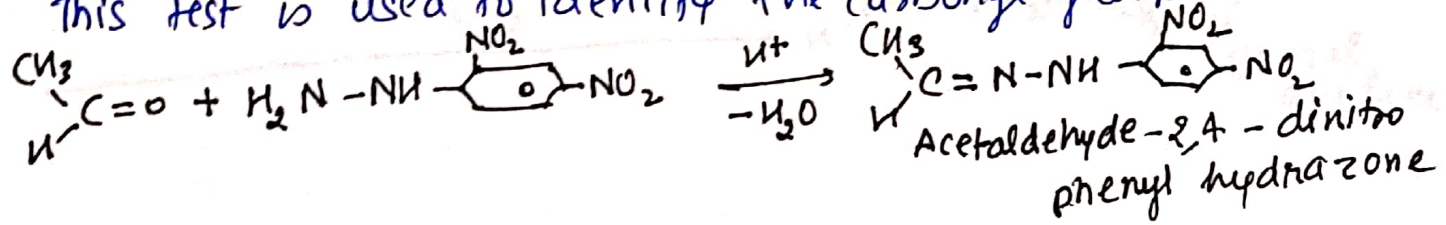 This test is used to identify the carbonyl
CH3 C=O + H2N-NH- NO2 -NO2 H+ -H2O CH3 C=N-NH- NO2 -NO2
H H
Acetaldehyde-2,4-dinitro
phenyl hydrazone